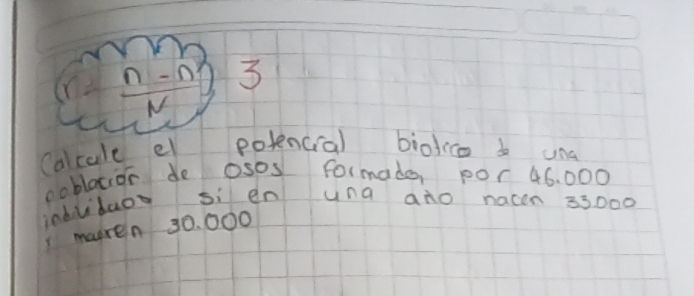 r = n - n / N 3
Calcule el potencial biotico d una
poblacion de osos formada, por 46.000
individuos si en una año nacen 33000
y mueren 30.000